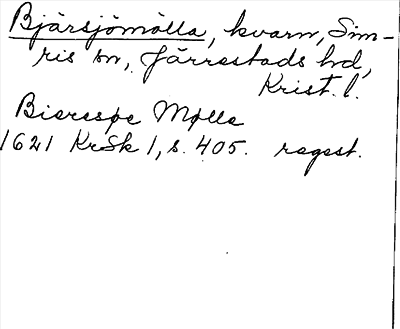 Bjärsjömölla, kvarn, Sim-
ris sn, Järrestads hd,
Krist. l.
Bieresøe Mølle
1621 KrSk 1, s. 405. regest.